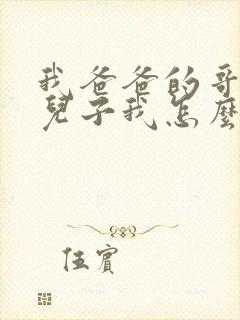 我爸爸的哥
兒子我怎麼
伍賓